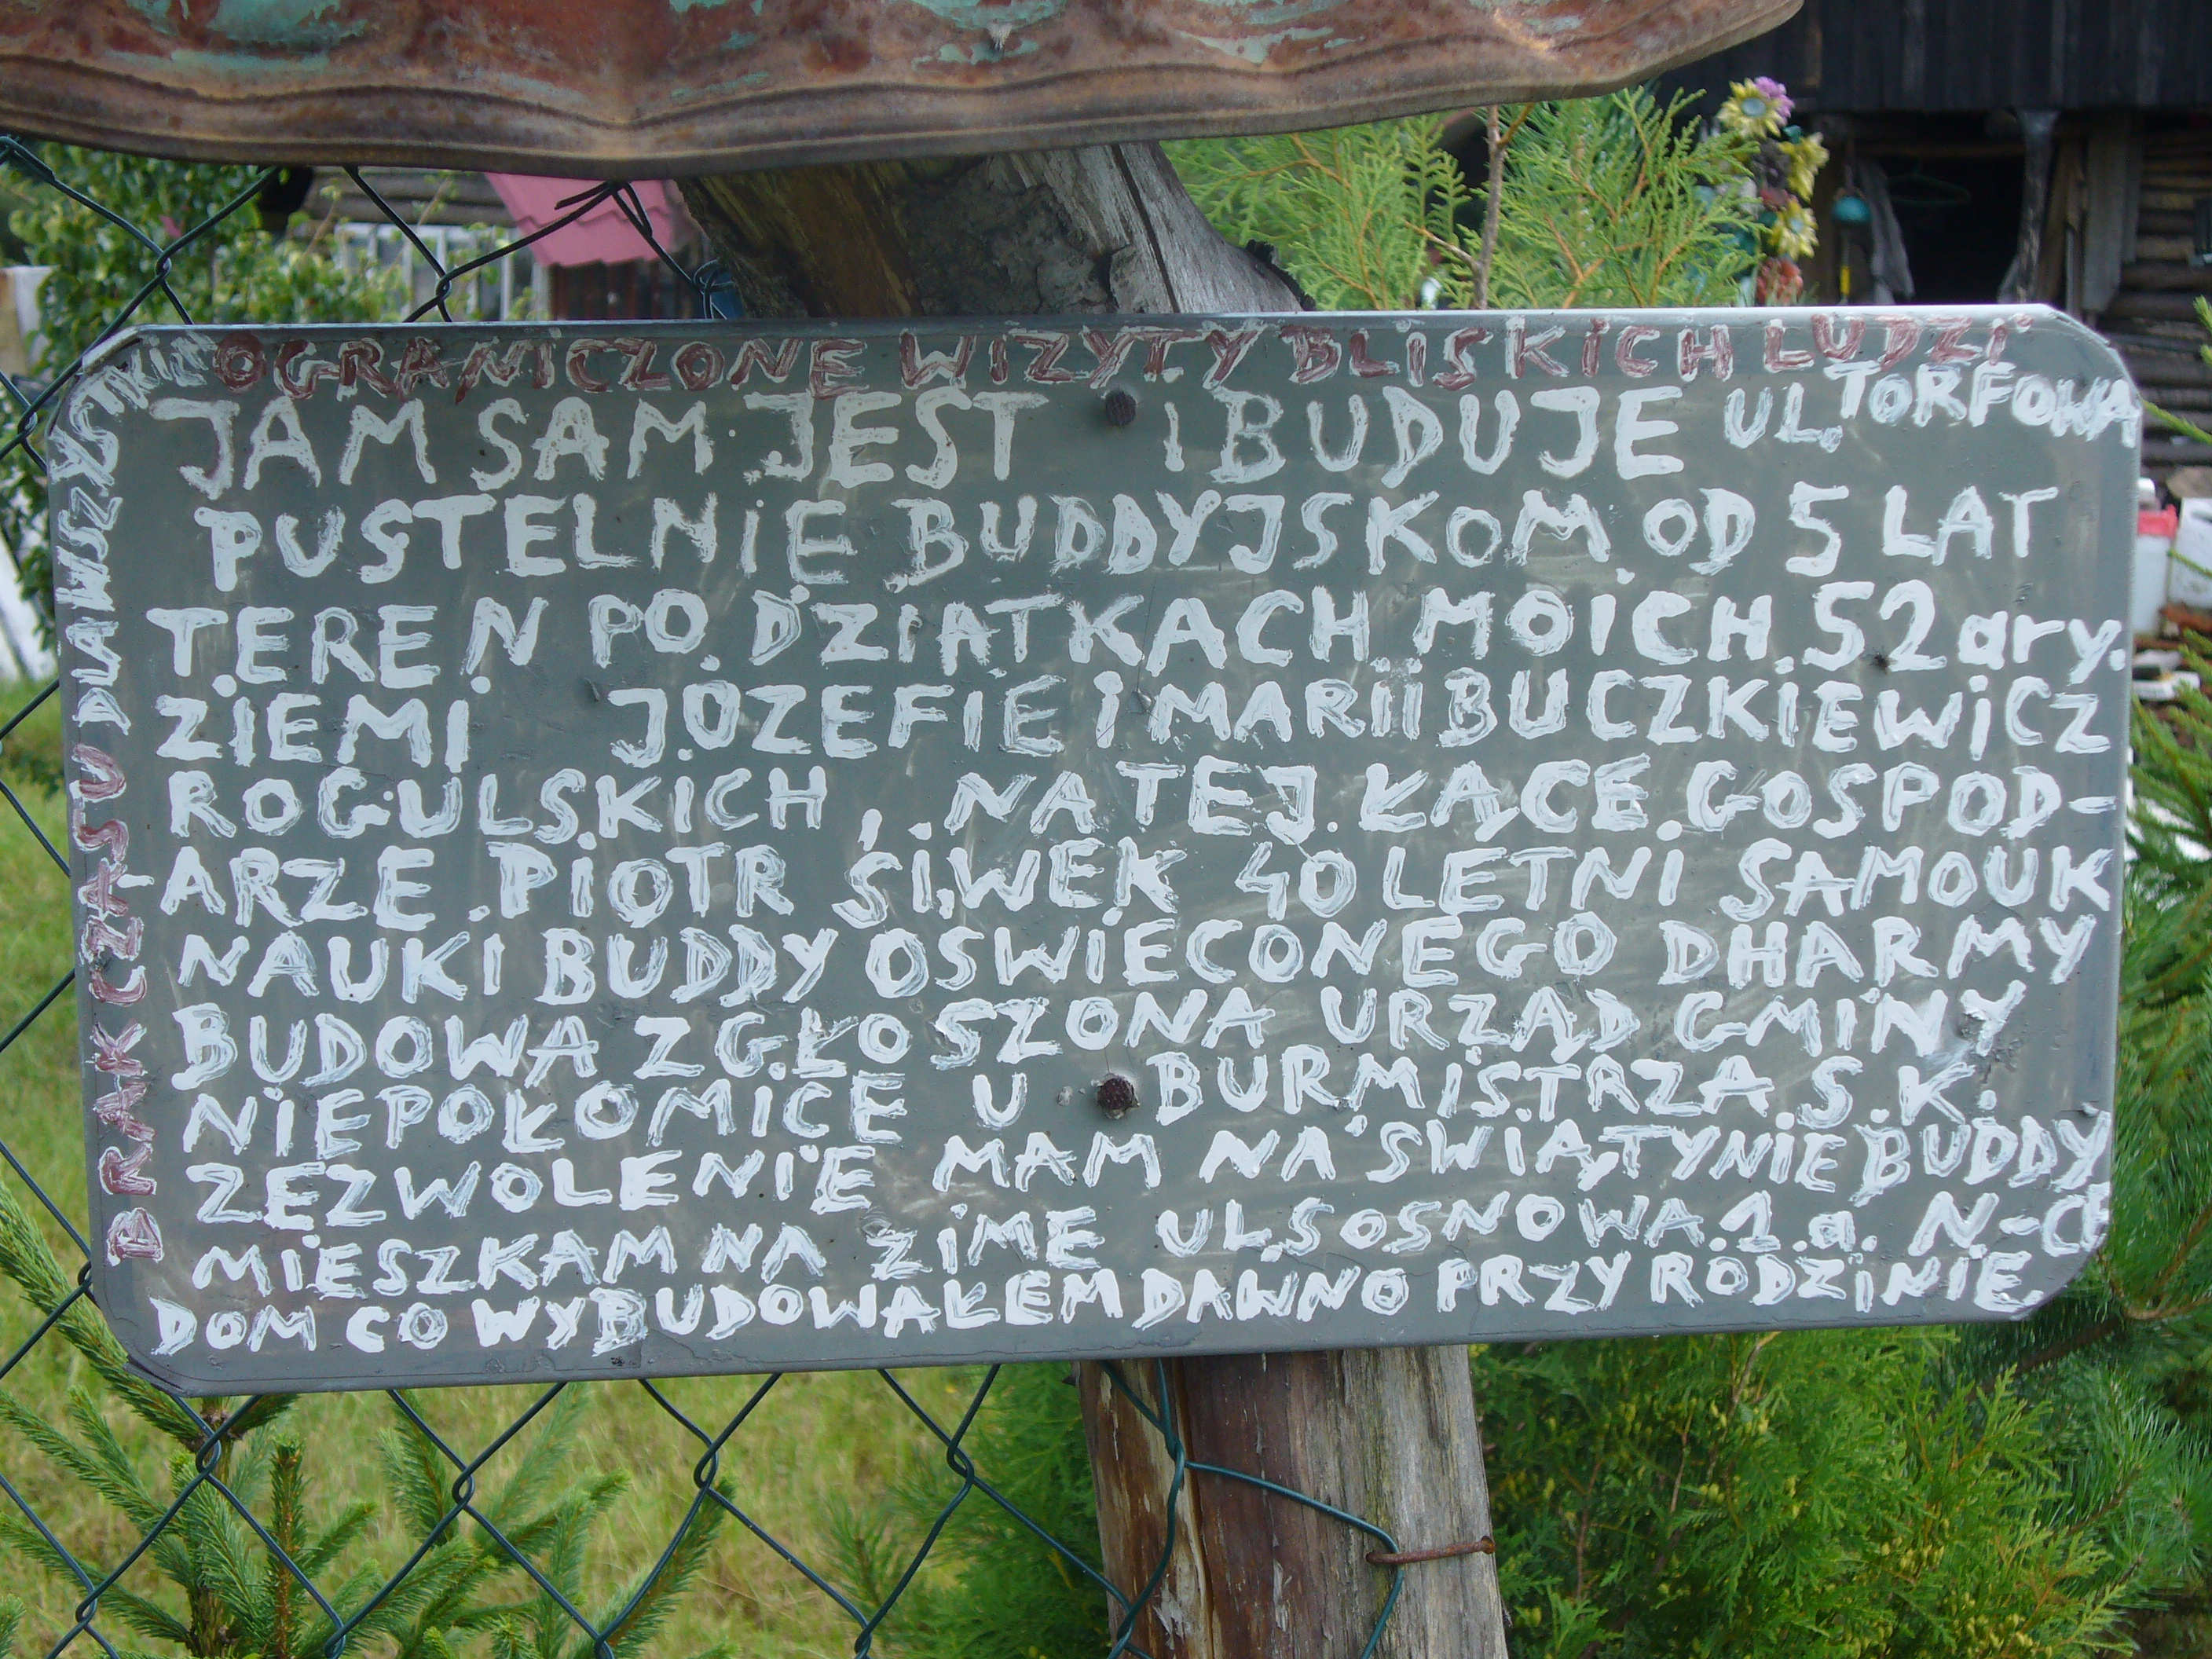 OGRANICZONE WIZYTY BLISKICH LUDZI
JAM SAM JEST i BUDUJE UL. TORFOWA
PUSTELNiE BUDDYJSKOM OD 5 LAT
TEREN PO DZIATKACH MOiCH 52 ary.
ZiEMi JÓZEFiE i MARii BUCZKiEWiCZ
ROGULSKiCH, NA TEJ ŁĄCE GOSPOD-
ARZE PiOTR ŚiWEK 40 LETNi SAMOUK
NAUKi BUDDY OSWiECONEGO DHARMY
BUDOWA ZGŁOSZONA URZĄD GMiNY
NiEPOŁOMiCE U BURMiSTRZA S.K.
ZEZWOLENiE MAM NA ŚWIĄTYNiE BUDDY
MiESZKAM NA ZiME UL. SOSNOWA.1.a. N-CE
DOM CO WYBUDOWAŁEM DAWNO PRZY RODZiNiE
BRAK CZASU DLA WSZYSTKICH